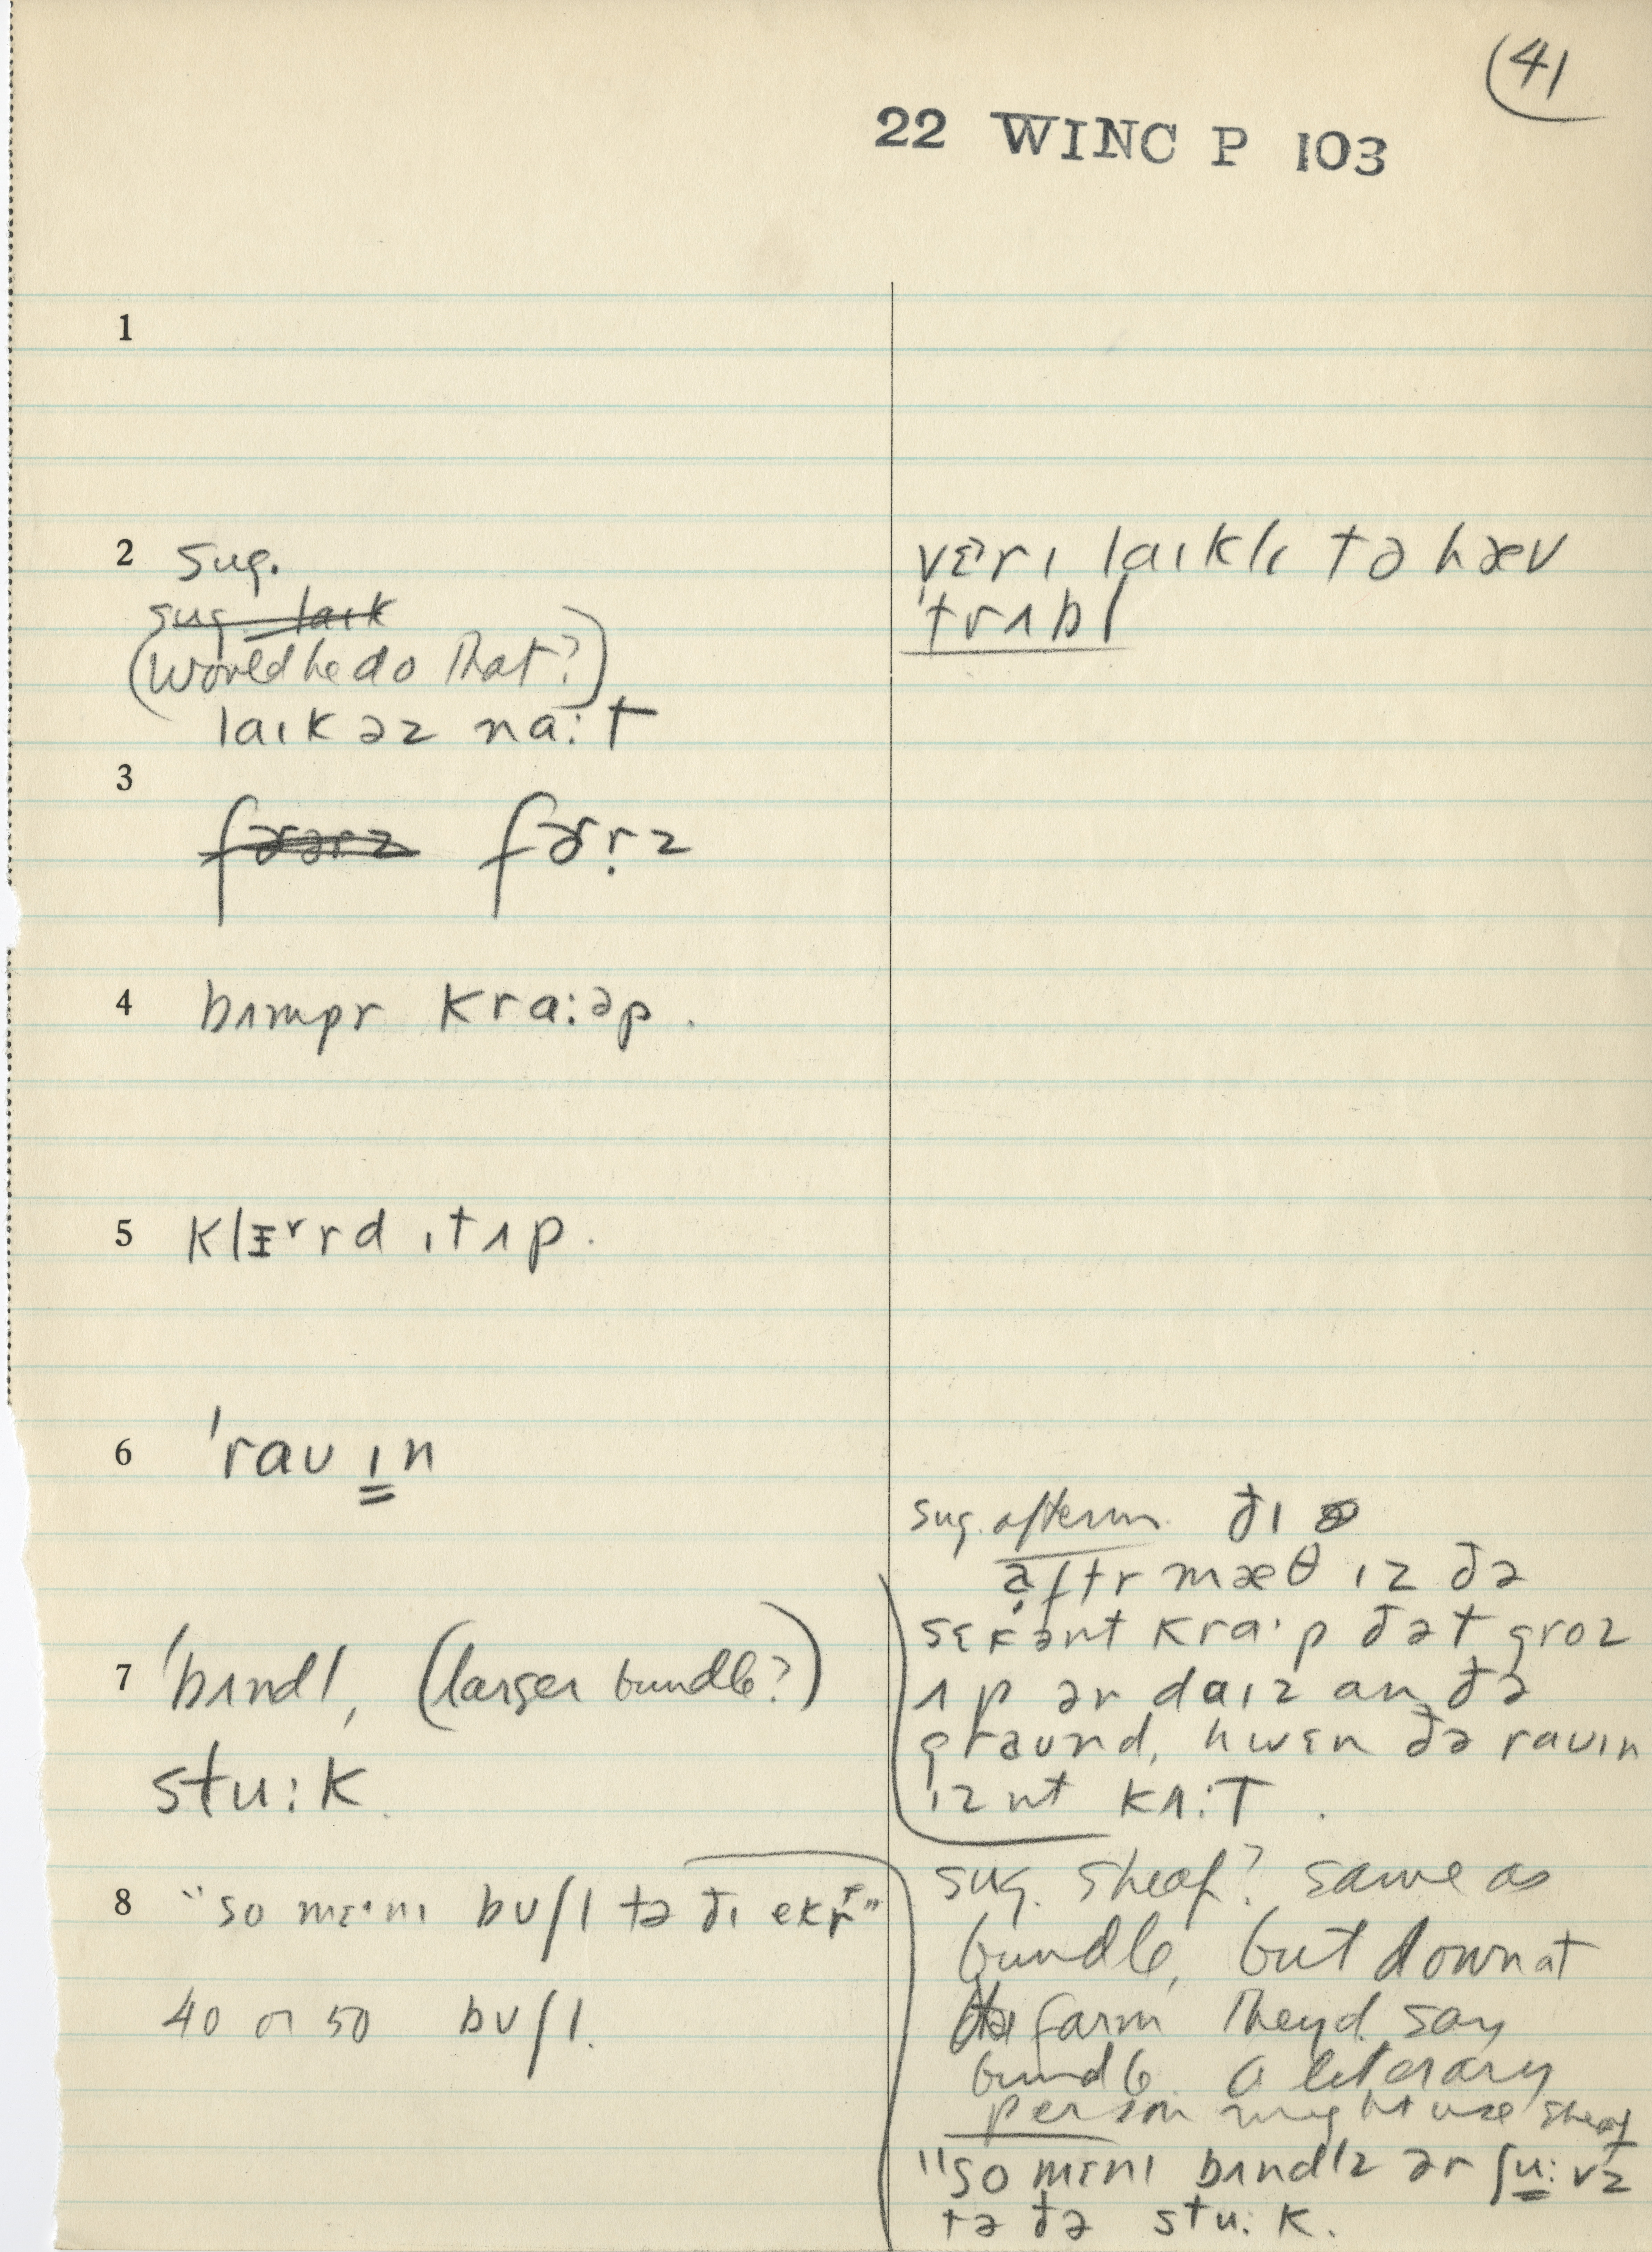 (41
22 WINC P 103
1
2 sug.
sug laik
(Would he do that?)
laɪk əz na:t
vɛrɪ laɪklɪ tə hæv
'trʌbl
3
fɚrz
4 bʌmpr kra:əp.
5 klɪrd ɪt ʌp.
6 'rauɪn
sug. afterm. ðɪ
aftr mæθ ɪz ðə
sɛkənt kra·p ðət groz
ʌp ər daɪz an ðə
graund, hwɛn ðə rauɪn
ɪznt kʌ:t.
7 'bʌndl, (larger bundle?)
stu:k.
8 "so mɛ·nɪ buʃl tə ðɪ ekr"
40 or 50 buʃl.
sug. sheaf? same as
bundle, but down at
the farm they'd say
bundle. A literary
person might use sheaf
"so mɛnɪ bʌndlz ər ʃu:vz
tə ðə stu:k.